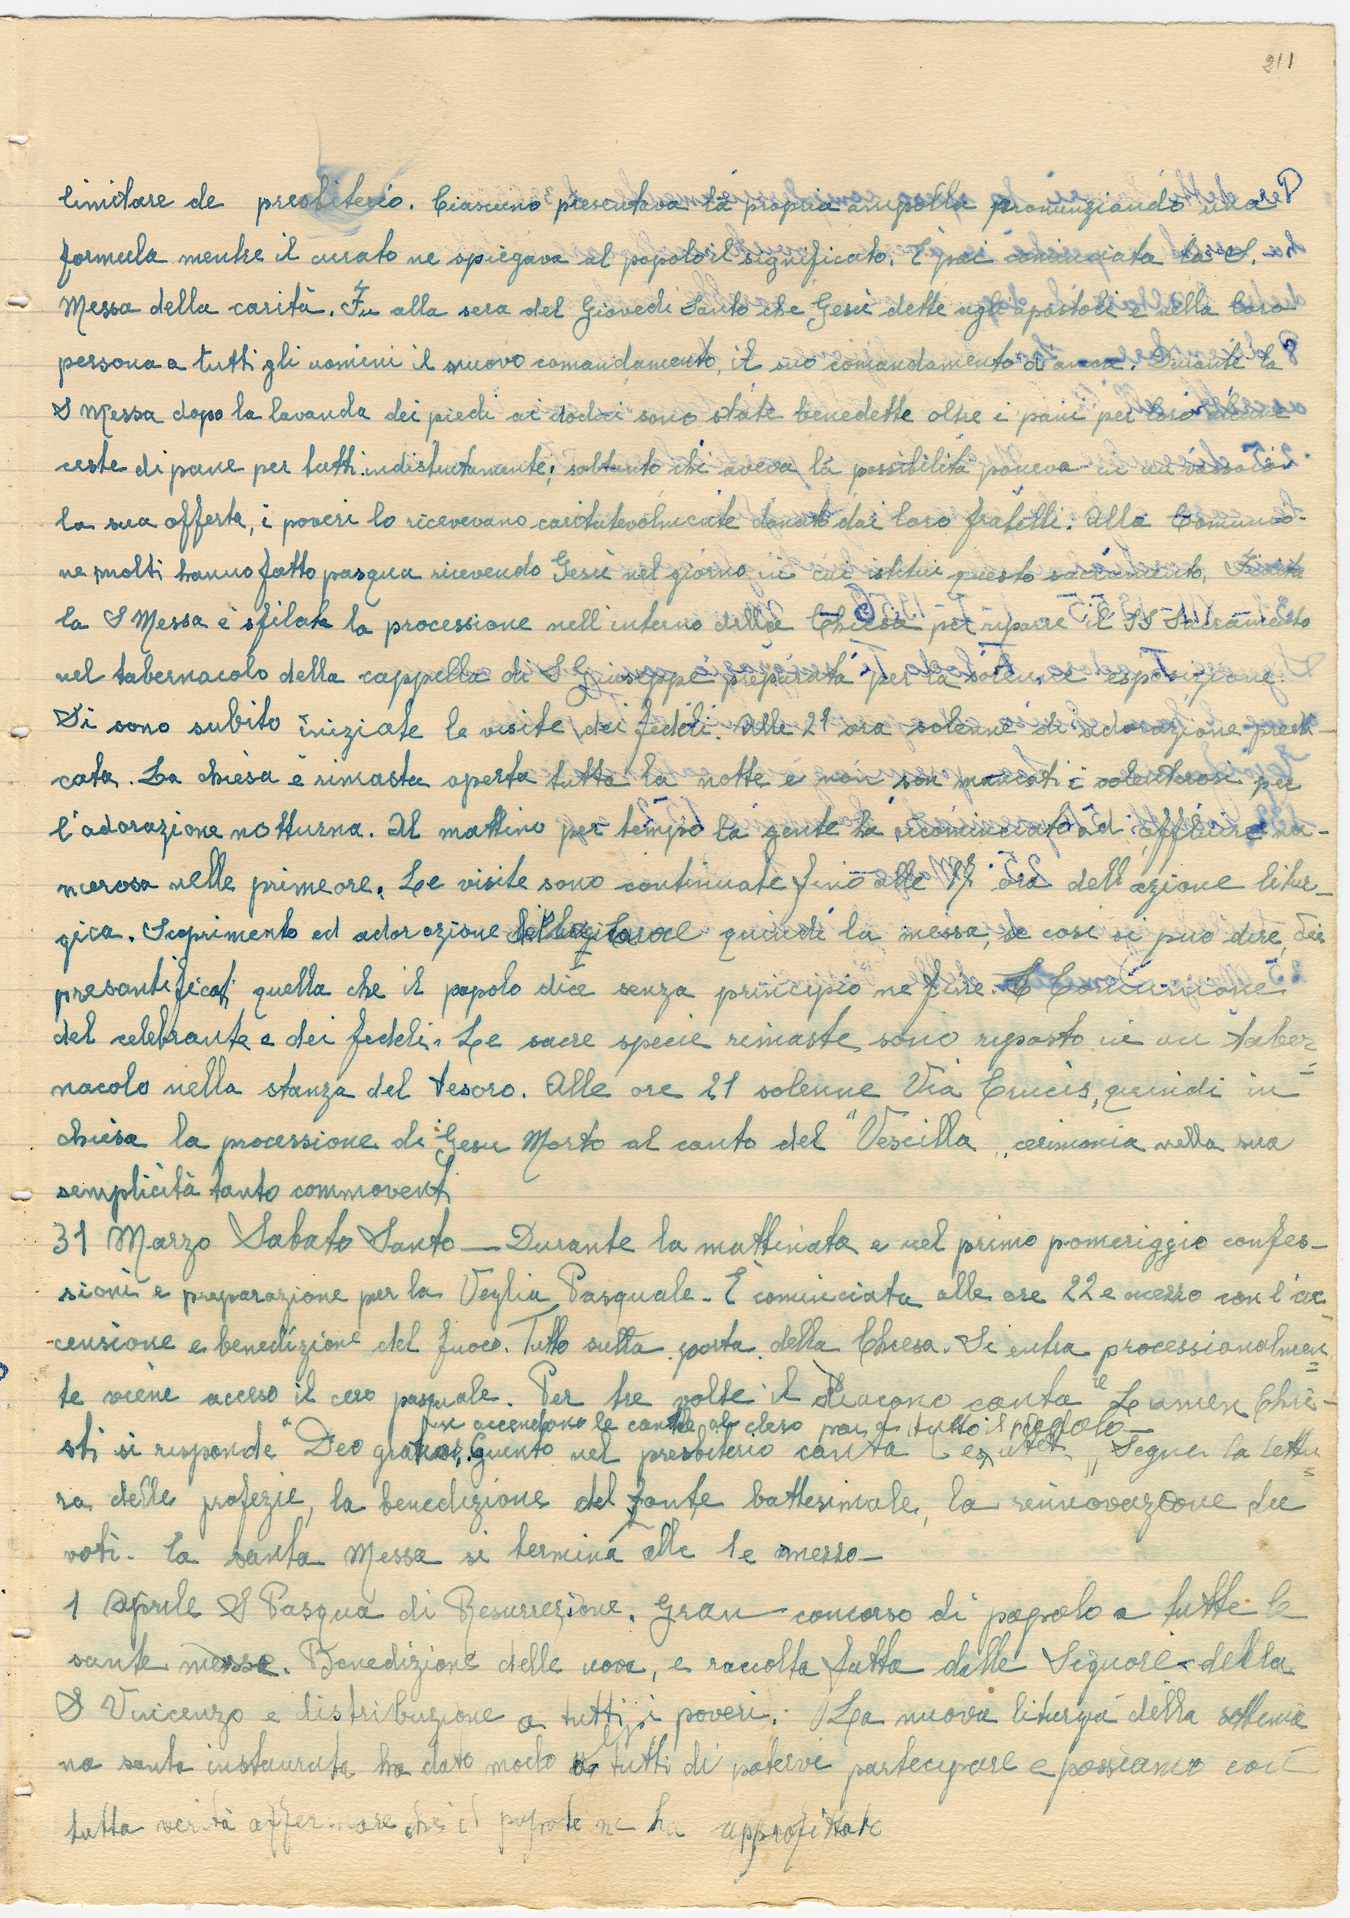 211
limitare de presbiterio. Ciascuno presentava la propria ampolla pronunziando una
formula mentre il curato ne spiegava al popolo il significato. È poi cominciata la S.
Messa della carità. Fu alla sera del Giovedi Santo che Gesù dette agli apostoli e nella loro
persona a tutti gli uomini il nuovo comandamento, il suo comandamento di amore. Durante la
S Messa dopo la lavanda dei piedi ai dodici sono state benedette oltre i pani per loro alcune
ceste di pane per tutti indistintamente; soltanto chi aveva la possibilità poneva in un vassoio
la sua offerta, i poveri lo ricevevano caritatevolmente donato dai loro fratelli. Alla Comunio-
ne molti hanno fatto pasqua ricevendo Gesù nel giorno in cui istitui questo sacramento. Finita
la S Messa è sfilata la processione nell interno della Chiesa per riporre il SS Sacramento
nel tabernacolo della cappella di S Giuseppe preparata per la solenne esposizione.
Si sono subito iniziate le visite dei fedeli. Alle 21 ora solenne di adorazione predi-
cata. La chiesa è rimasta aperta tutta la notte e non son mancati i volenterosi per
l'adorazione notturna. Al mattino per tempo la gente ha ricominciato ad affluire nu-
merosa nelle prime ore. Le visite sono continuate fino alle 17 ora dell azione litur-
gica. Scoprimento ed adorazione quindi la messa, se così si può dire, dei
presantificati quella che il popolo dice senza principio ne fine. Comunione
del celebrante e dei fedeli. Le sacre specie rimaste sono riposto in un taber=
nacolo nella stanza del tesoro. Alle ore 21 solenne Via Crucis, quindi in
chiesa la processione di Gesu Morto al canto del "Vescilla „ cerimonia nella sua
semplicità tanto commovente
31 Marzo Sabato Santo — Durante la mattinata e nel primo pomeriggio confes-
sioni e preparazione per la Veglia Pasquale. È cominciata alle ore 22 e mezzo con l'ac-
censione e benedizione del fuoco. Tutto sulla porta della Chiesa. Si entra processionalmen=
te viene acceso il cero pasquale. Per tre volte il diacono canta il "Lumen Chri-
si accendono le candele al clero poi a tutto il popolo —
sti si risponde "Deo gratias„. Giunto nel presbiterio canta l'exultet „ Segue la lettu=
ra delle profezie, la benedizione del fonte battesimale, la rinnovazione dei
voti. La santa Messa si termina alle 1 e mezzo —
1 Aprile S Pasqua di Resurrezione. Gran concorso di popolo a tutte le
sante messe. Benedizione delle uova, e raccolta fatta dalle Signore della
S Vincenzo e distribuzione a tutti i poveri. La nuova liturgia della settima
na santa instaurata ha dato modo a tutti di potervi partecipare e possiamo con
tutta verità affermare che il popolo ne ha approfittato